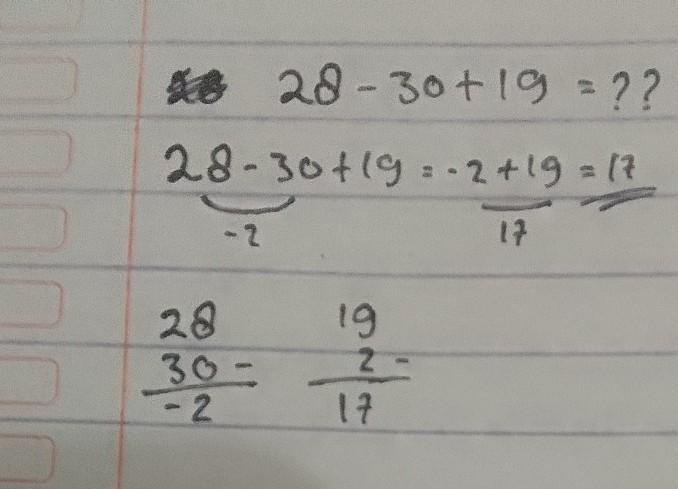 28 - 30 + 19 = ??
28 - 30 + 19 = -2 + 19 = 17
-2 17
28 19
30 - 2 -
-2 17